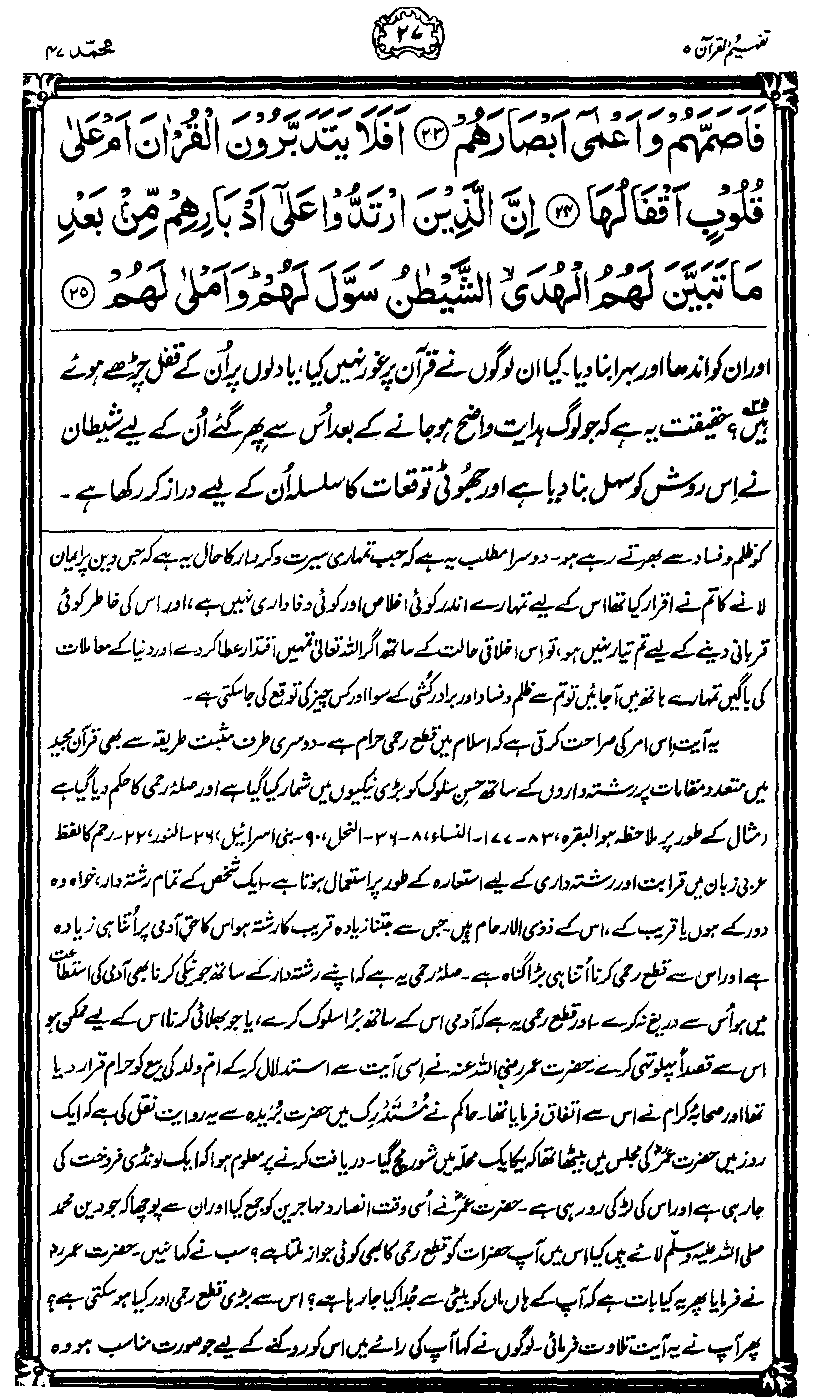 تفہیم القرآن ۵
۲۷
محمّد ۴۷
فَاَصَمَّهُمْ وَاَعْمٰٓى اَبْصَارَهُمْ ﴿۲۳﴾ اَفَلَا يَتَدَبَّرُوْنَ الْقُرْاٰنَ اَمْ عَلٰى
قُلُوْبٍ اَقْفَالُهَا ﴿۲۴﴾ اِنَّ الَّذِيْنَ ارْتَدُّوْا عَلٰٓى اَدْبَارِهِمْ مِّنْۢ بَعْدِ
مَا تَبَيَّنَ لَهُمُ الْهُدَى ۙ الشَّيْطٰنُ سَوَّلَ لَهُمْ ؕ وَاَمْلٰى لَهُمْ ﴿۲۵﴾
اور ان کو اندھا اور بہرا بنا دیا۔ کیا ان لوگوں نے قرآن پر غور نہیں کیا، یا دلوں پر اُن کے قفل چڑھے ہوئے
ہیں؟ حقیقت یہ ہے کہ جو لوگ ہدایت واضح ہو جانے کے بعد اُس سے پھر گئے اُن کے لیے شیطان
نے اِس روش کو سہل بنا دیا ہے اور جھوٹی توقعات کا سلسلہ اُن کے لیے دراز کر رکھا ہے۔
کو ظلم و فساد سے بھرتے رہے ہو۔ دوسرا مطلب یہ ہے کہ جب تمہاری سیرت و کردار کا حال یہ ہے کہ جس دین پر ایمان
لانے کا تم نے اقرار کیا تھا اس کے لیے تمہارے اندر کوئی اخلاص اور کوئی وفاداری نہیں ہے، اور اس کی خاطر کوئی
قربانی دینے کے لیے تم تیار نہیں ہو، تو اِس اخلاقی حالت کے ساتھ اگر اللہ تعالیٰ تمہیں اقتدار عطا کر دے اور دنیا کے معاملات
کی باگیں تمہارے ہاتھ میں آ جائیں تو تم سے ظلم و فساد اور برادر کُشی کے سوا اور کس چیز کی توقع کی جا سکتی ہے۔
یہ آیت اِس امر کی صراحت کرتی ہے کہ اسلام میں قطع رحمی حرام ہے۔ دوسری طرف مثبت طریقہ سے بھی قرآن مجید
میں متعدد مقامات پر رشتہ داروں کے ساتھ حسنِ سلوک کو بڑی نیکیوں میں شمار کیا گیا ہے اور صلۂ رحمی کا حکم دیا گیا ہے
(مثال کے طور پر ملاحظہ ہو البقرہ، ۸۳ - ۱۷۷۔ النساء، ۸ - ۳۶۔ النحل، ۹۰۔ بنی اسرائیل، ۲۶۔ النور، ۲۲۔ رحم کا لفظ
عربی زبان میں قرابت اور رشتہ داری کے لیے استعارہ کے طور پر استعمال ہوتا ہے۔ ایک شخص کے تمام رشتہ دار، خواہ وہ
دور کے ہوں یا قریب کے، اس کے ذوی الارحام ہیں جس سے جتنا زیادہ قریب کا رشتہ ہو اس کا حق آدمی پر اُتنا ہی زیادہ
ہے اور اس سے قطع رحمی کرنا اُتنا ہی بڑا گناہ ہے۔ صلۂ رحمی یہ ہے کہ اپنے رشتہ دار کے ساتھ جو نیکی کرنا بھی آدمی کی استطاعت
میں ہو اُس سے دریغ نہ کرے۔ اور قطع رحمی یہ ہے کہ آدمی اس کے ساتھ بُرا سلوک کرے، یا جو بھلائی کرنا اس کے لیے ممکن ہو
اس سے قصداً پہلوتہی کرے۔ حضرت عمر رضی اللہ عنہ نے اِسی آیت سے استدلال کر کے اُمِّ ولد کی بیع کو حرام قرار دیا
تھا اور صحابۂ کرام نے اس سے اتفاق فرمایا تھا۔ حاکم نے مُسْتَدْرک میں حضرت بُرَیدہ سے یہ روایت نقل کی ہے کہ ایک
روز میں حضرت عمرؓ کی مجلس میں بیٹھا تھا کہ یکایک محلہ میں شور مچ گیا۔ دریافت کرنے پر معلوم ہوا کہ ایک لونڈی فروخت کی
جا رہی ہے اور اس کی لڑکی رو رہی ہے۔ حضرت عمرؓ نے اُسی وقت انصار و مہاجرین کو جمع کیا اور ان سے پوچھا کہ جو دین محمد
صلی اللہ علیہ وسلم لائے ہیں کیا اس میں آپ حضرات کو قطع رحمی کا بھی کوئی جواز ملتا ہے؟ سب نے کہا نہیں۔ حضرت عمرؓ
نے فرمایا پھر یہ کیا بات ہے کہ آپ کے ہاں ماں کو بیٹی سے جُدا کیا جا رہا ہے؟ اس سے بڑی قطع رحمی اور کیا ہو سکتی ہے؟
پھر آپ نے یہ آیت تلاوت فرمائی۔ لوگوں نے کہا آپ کی رائے میں اس کو روکنے کے لیے جو صورت مناسب ہو وہ